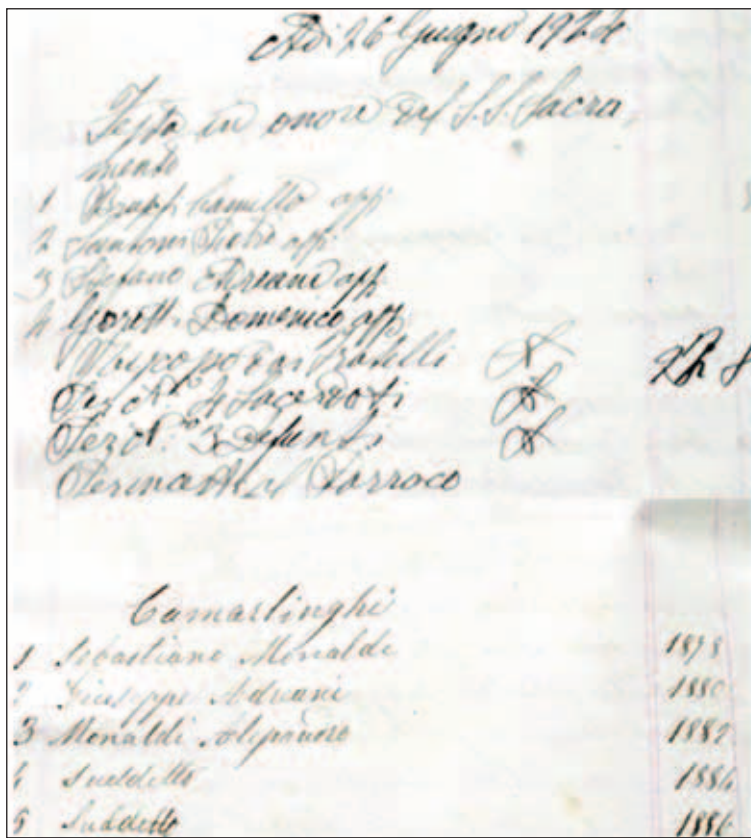 Adi 26 Giugno 192
Festa in onore del S.S. Sacra-
mento
1 Camillo app.
2 Santoni Pietro app.
3 Stefano Adriani app.
4 Goretti Domenico app.
Fratelli
Per N.º 4 Sacerdoti
Per N.º 3 Defunti
al Parroco
Camarlinghi
1 Sebastiano Monaldi 1878
2 Giuseppe Adriani 1880
3 Monaldi Alessandro 1882
4 Suddetto 1884
5 Suddetto 1886